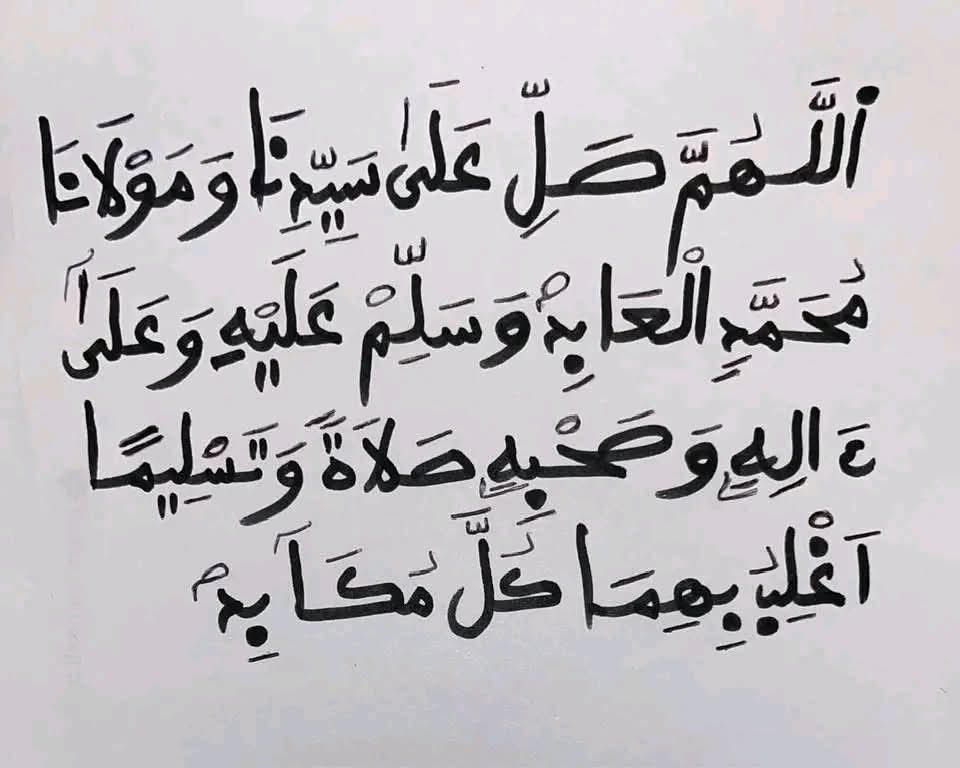 اَللَّـهُمَّ صَلِّ عَلَىٰ سَيِّدِنَا وَمَوْلَانَا
مُحَمَّدِ الْعَابِدْ وَسَلِّمْ عَلَيْهِ وَعَلَىٰ
ءَالِهِ وَصَحْبِهِ صَلَاةً وَتَسْلِيمًا
اَغْلِبُ بِهِمَا كُلَّ مُكَابِدْ